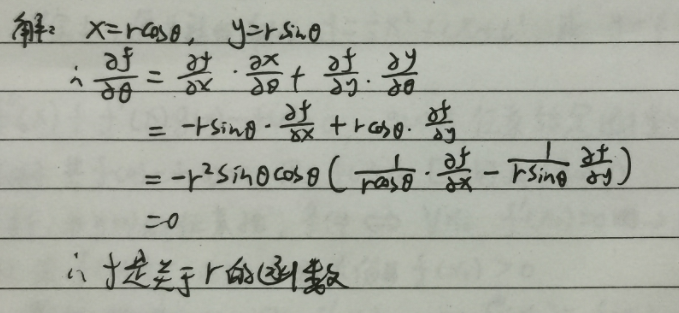 解: x=rcosθ, y=rsinθ
∴ ∂f/∂θ = ∂f/∂x · ∂x/∂θ + ∂f/∂y · ∂y/∂θ
= -rsinθ · ∂f/∂x + rcosθ · ∂f/∂y
= -r²sinθcosθ ( 1/rcosθ · ∂f/∂x - 1/rsinθ ∂f/∂y )
=0
∴ f是关于r的函数